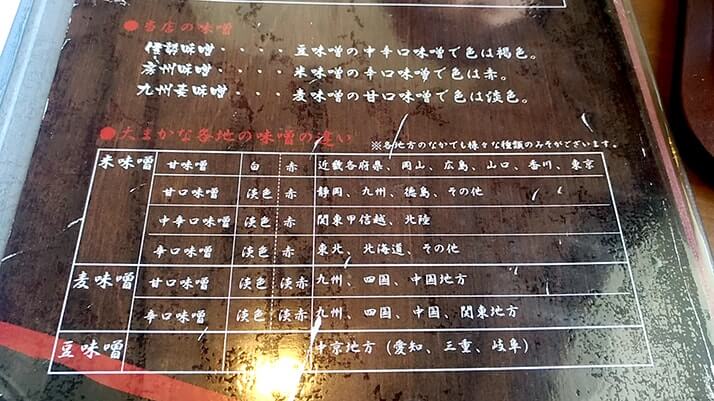 ●当店の味噌
伊勢味噌・・・・豆味噌の中辛口味噌で色は褐色。
房州味噌・・・・米味噌の辛口味噌で色は赤。
九州麦味噌・・・・麦味噌の甘口味噌で色は淡色。
●大まかな各地の味噌の違い ※各地方のなかでも様々な種類のみそがございます。
米味噌 甘味噌 白 赤 近畿各府県、岡山、広島、山口、香川、東京
甘口味噌 淡色 赤 静岡、九州、徳島、その他
中辛口味噌 淡色 赤 関東甲信越、北陸
辛口味噌 淡色 赤 東北、北海道、その他
麦味噌 甘口味噌 淡色 淡赤 九州、四国、中国地方
辛口味噌 淡色 淡赤 九州、四国、中国、関東地方
豆味噌 中京地方（愛知、三重、岐阜）